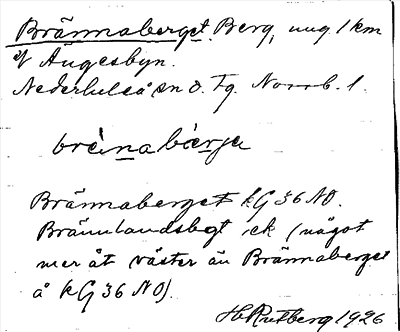 Brännaberget. Berg, ung. 1 km
V Ängesbyn.
Nederluleå sn o. Tg. Norrb. l.
brèⁱnabærje
Brännaberget kG 36 NO.
Brännlandsbgt ek (något
mer åt väster än Brännaberget
å kG 36 NO).
H Rutberg 1926